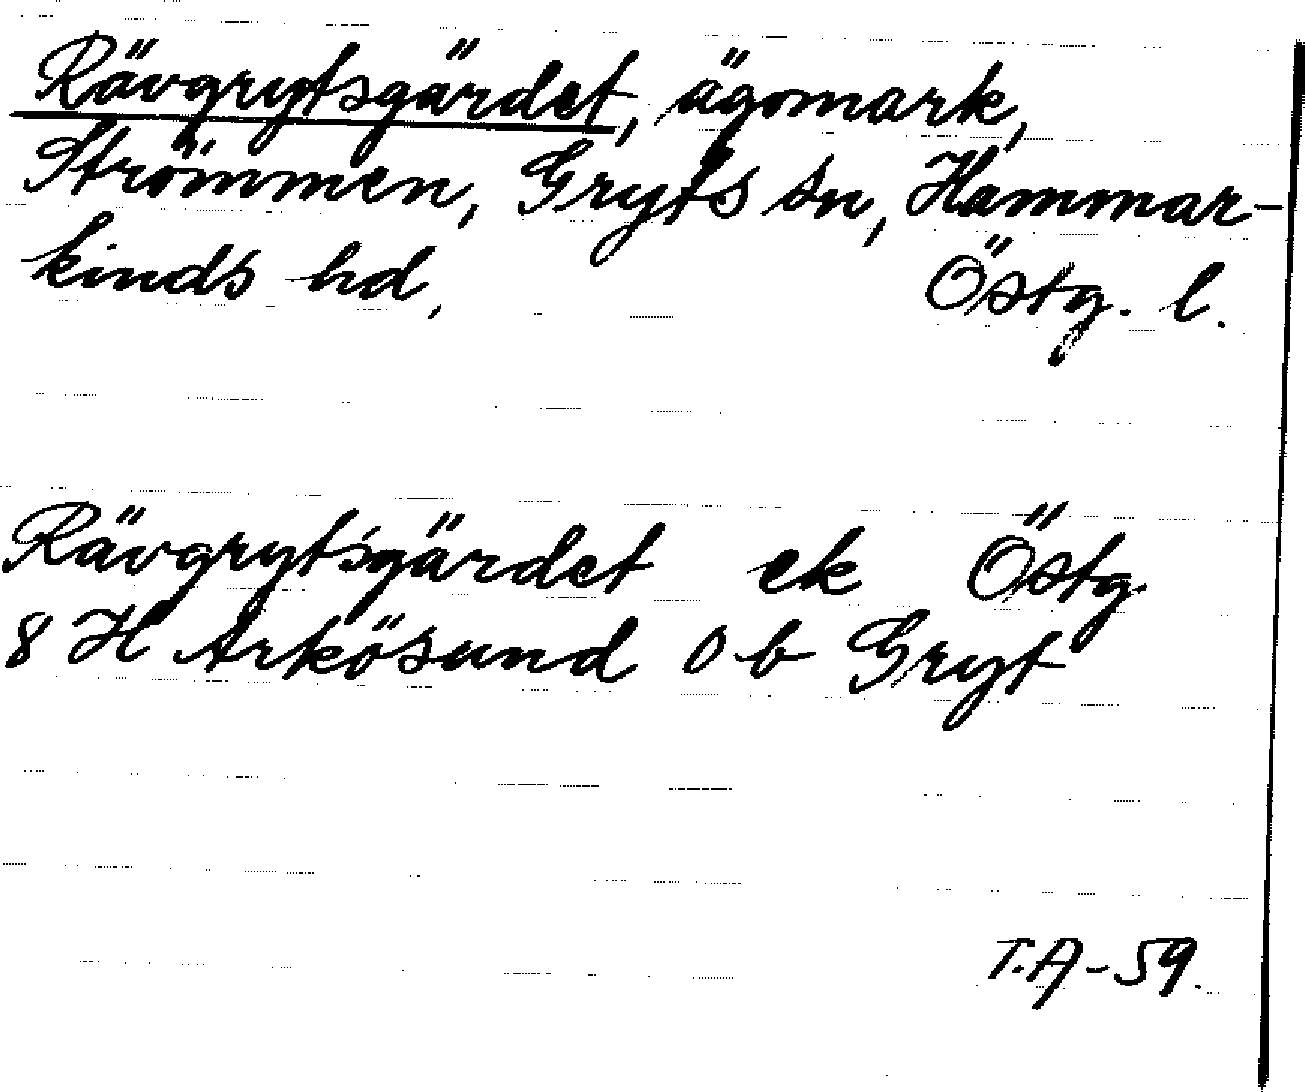 Rävgrytsgärdet, ägomark,
Strömmen, Gryts sn, Hammar-
kinds hd, Östg. l.
Rävgrytsgärdet ek Östg.
8 H Arkösund 0 b Gryt
T.A-59.